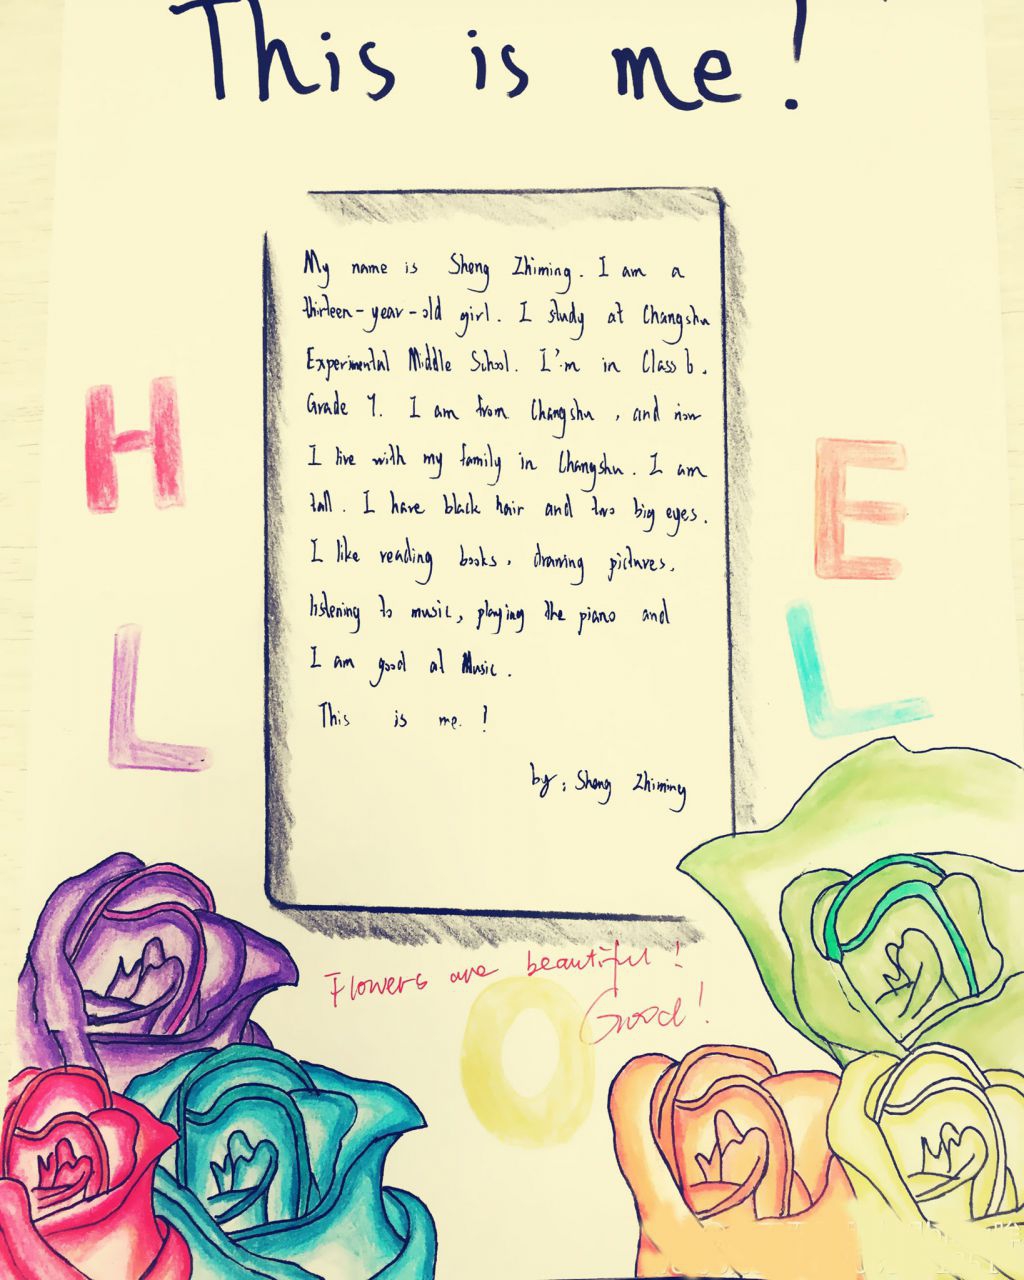 This is me!
My name is Sheng Zhiming. I am a
thirteen-year-old girl. I study at Changshu
Experimental Middle School. I'm in Class 6.
Grade 7. I am from Changshu, and now
I live with my family in Changshu. I am
tall. I have black hair and two big eyes.
I like reading books, drawing pictures,
listening to music, playing the piano and
I am good at Music.
This is me!
by: Sheng Zhiming
H
E
L
L
O
Flowers are beautiful!
Good!